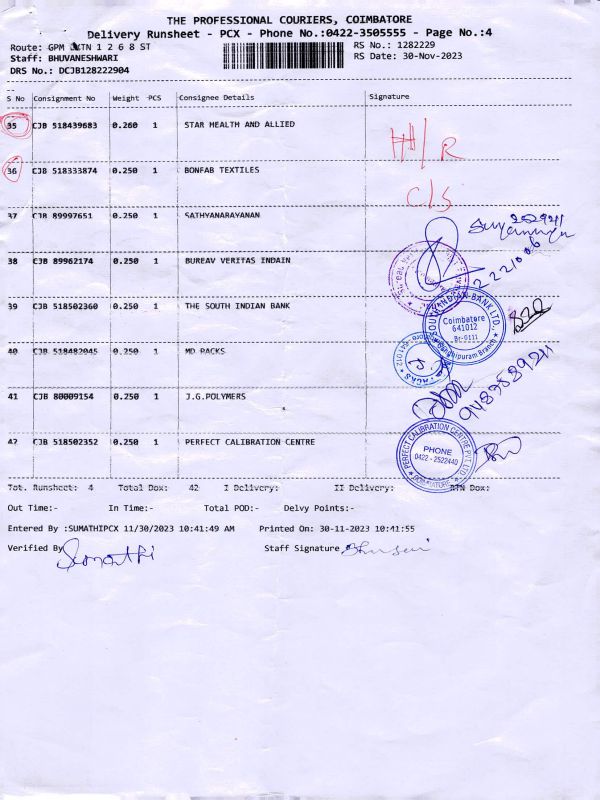 THE PROFESSIONAL COURIERS, COIMBATORE
Delivery Runsheet - PCX - Phone No.:0422-3505555 - Page No.:4
Route: GPM EXTN 1 2 6 8 ST RS No.: 1282229
Staff: BHUVANESHWARI RS Date: 30-Nov-2023
DRS No.: DCJB128222904
S No Consignment No Weight PCS Consignee Details Signature
35 CJB 518439683 0.260 1 STAR HEALTH AND ALLIED
H/R
36 CJB 518333874 0.250 1 BONFAB TEXTILES
C/S
37 CJB 89997651 0.250 1 SATHYANARAYANAN
38 CJB 89962174 0.250 1 BUREAV VERITAS INDAIN
39 CJB 518502360 0.250 1 THE SOUTH INDIAN BANK
SOUTH INDIAN BANK LTD.
Coimbatore
641012
Br-0111
Gandhipuram Branch
40 CJB 518482045 0.250 1 MD PACKS
41 CJB 80009154 0.250 1 J.G.POLYMERS
42 CJB 518502352 0.250 1 PERFECT CALIBRATION CENTRE
PERFECT CALIBRATION CENTRE PVT LTD
PHONE
0422 - 2522440
COIMBATORE
Tot. Runsheet: 4 Total Dox: 42 I Delivery: II Delivery: RTN Dox:
Out Time:- In Time:- Total POD:- Delvy Points:-
Entered By :SUMATHIPCX 11/30/2023 10:41:49 AM Printed On: 30-11-2023 10:41:55
Verified By Sumathi Staff Signature